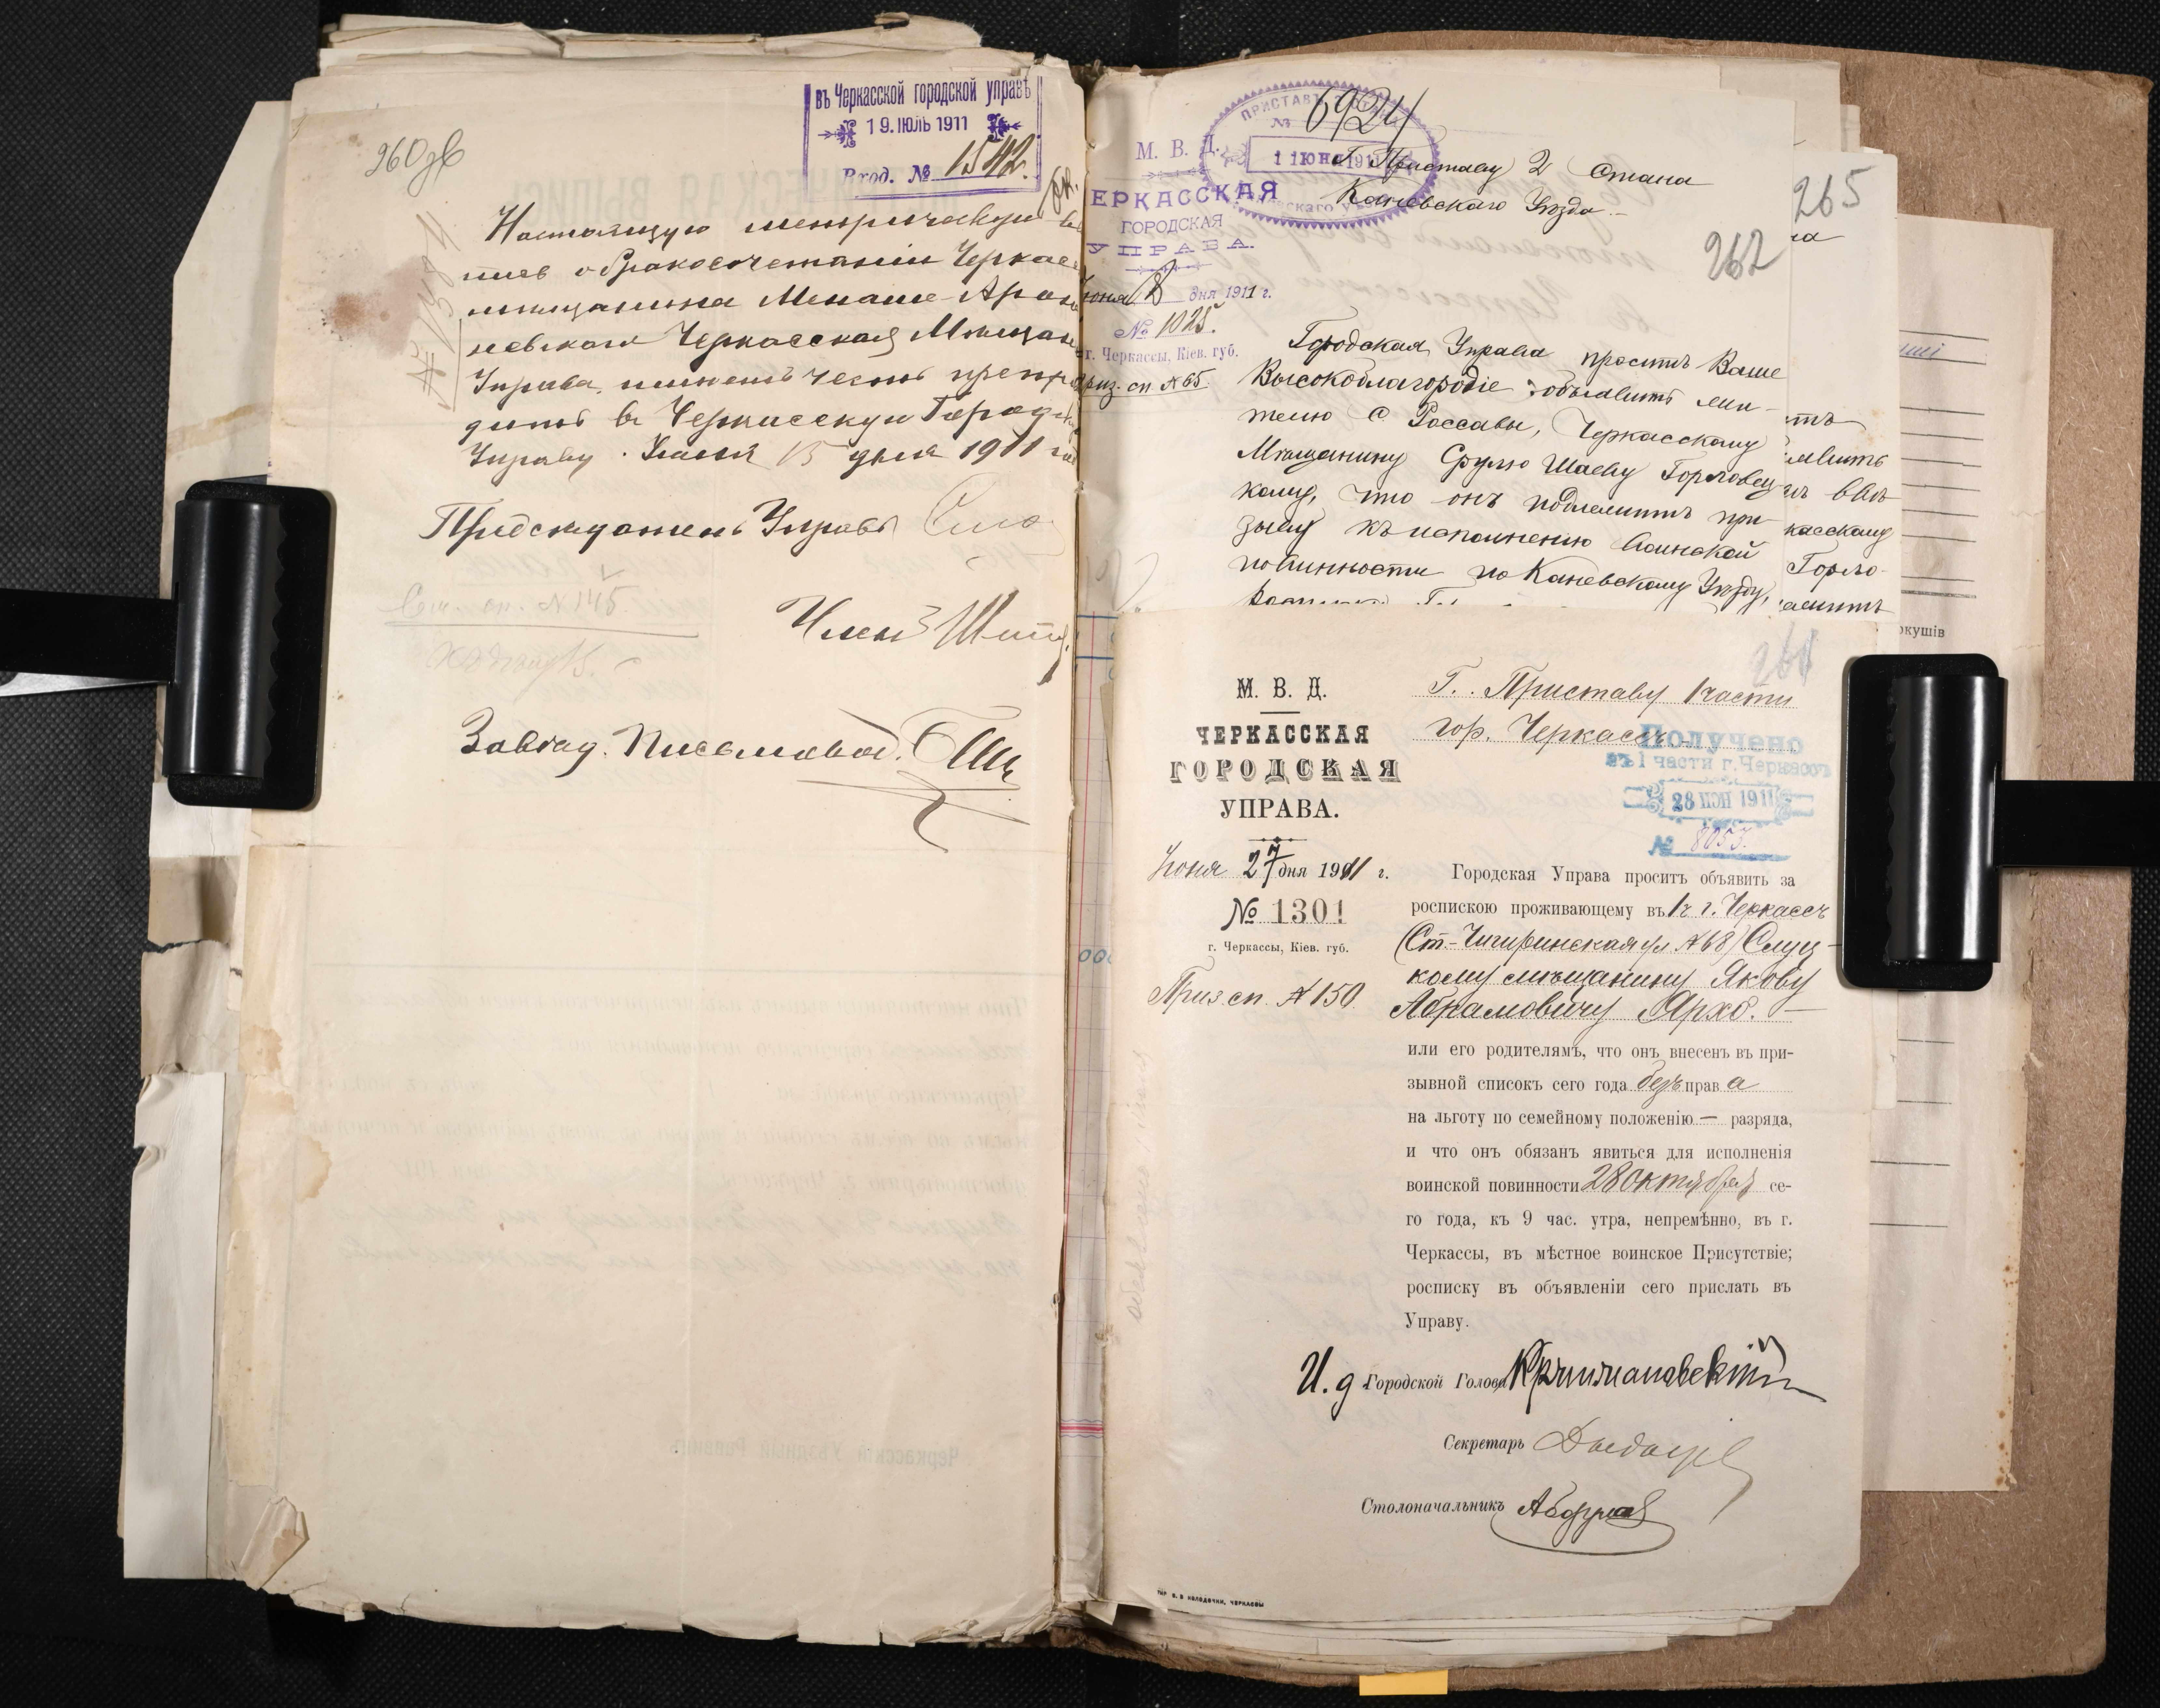 260 об
въ Черкасской городской управѣ
19. ІЮЛЬ 1911
Вход. № 1542.
№ 1381
Настоящую метрическую
о бракосочетаніи Черкас
мѣщанина Менаше-Арон
невскаго Черкасская Мѣщан
Управа имѣетъ честь препро
дить въ Черкасскую Городск
Управу. Іюля 15 дня 1911 год
Предсѣдатель Управы
№ 145.
Членъ
Завѣд. Письмовод.
ПРИСТАВЪ
№ 6924
11 ІЮН 191
М. В. Д.
ЕРКАССКАЯ
ГОРОДСКАЯ
УПРАВА.
Іюня 8 дня 1911 г.
№ 1025.
г. Черкассы, Кіев. губ.
Приз. сп № 65.
Г. Приставу 2 Стана
Каневскаго Уѣзда
262
265
Городская Управа проситъ Ваше
Высокоблагородіе объявить жи-
телю с. Россавы, Черкасскому
Мѣщанину Срулю Шаеву Горловец-
кому, что онъ подлежитъ при-
зыву къ исполненію воинской
повинности по Каневскому Уѣзду,
касскому
Горло-
261
М. В. Д.
ЧЕРКАССКАЯ
ГОРОДСКАЯ
УПРАВА.
Іюня 27 дня 1911 г.
№ 1301
г. Черкассы, Кіев. губ.
Приз. сп. № 150
Г. Приставу 1 части
гор. Черкассъ
Получено
въ 1 части г. Черкассъ
28 ІЮН 1911
№ 8053.
Городская Управа проситъ объявить за
роспискою проживающему въ 1 ч. г. Черкассъ
(Ст.-Чигиринская ул. № 68) Слуц-
кому мѣщанину Якову
Абрамовичу Архо. —
или его родителямъ, что онъ внесенъ въ при-
зывной списокъ сего года безъ права
на льготу по семейному положенію — разряда,
и что онъ обязанъ явиться для исполненія
воинской повинности 28 октября се-
го года, къ 9 час. утра, непремѣнно, въ г.
Черкассы, въ мѣстное воинское Присутствіе;
росписку въ объявленіи сего прислать въ
Управу.
И. д. Городской Голова
Секретарь
Столоначальникъ